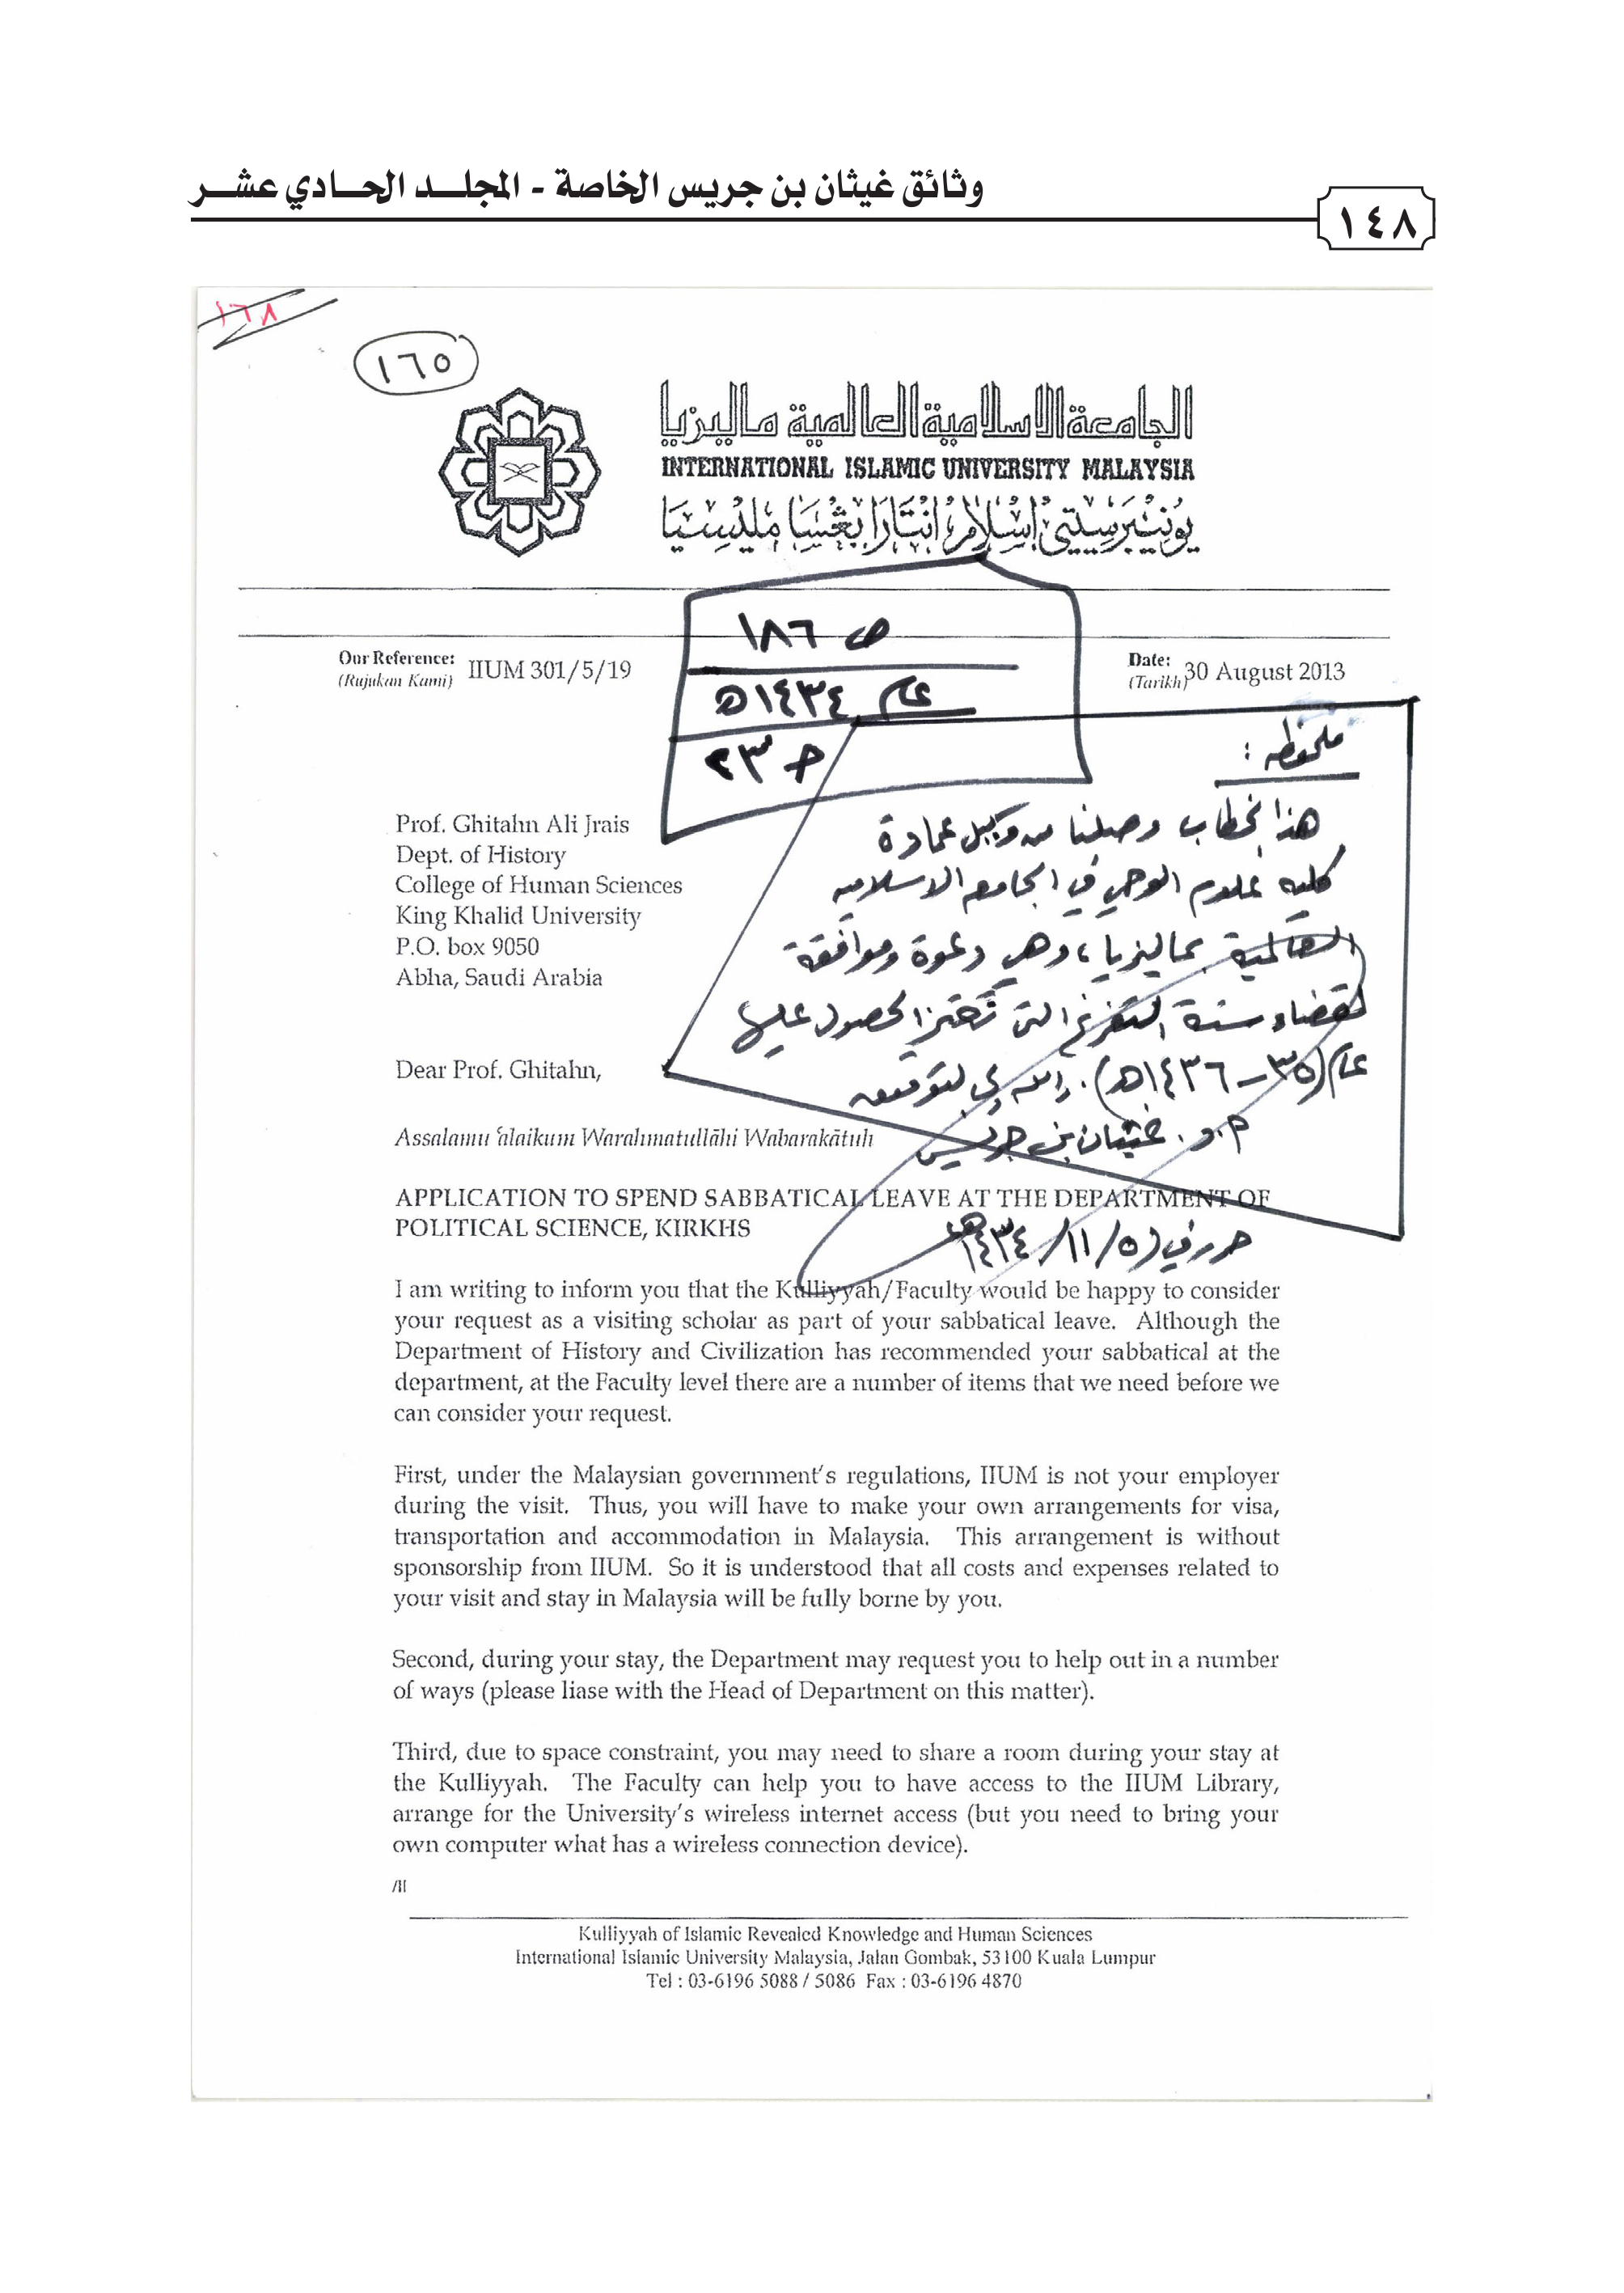 وثائق غيثان بن جريس الخاصة - المجلد الحادي عشر
١٤٨
١٦٨
١٦٥
الجامعة الاسلامية العالمية ماليزيا
INTERNATIONAL ISLAMIC UNIVERSITY MALAYSIA
يونيبرسيتي إسلام انتارابغسا مليسيا
ص ١٨٦
عام ١٤٣٤هـ
ج ٢٣
Our Reference: IIUM 301/5/19
(Rujukan Kami)
Date: 30 August 2013
(Tarikh)
ملحوظه :
هذا خطاب وصلنا من وكيل عمادة
كلية علوم الوحي في الجامعة الاسلامية
العالمية بماليزيا ، وهي دعوة وموافقة
لقضاء سنة التفرغ التي الحصول عليها
عام (٣٥ - ١٤٣٦هـ) . والله ولي التوفيق
أ.د. غيثان بن جريس
حرر في ٥ / ١١ / ١٤٣٤هـ
Prof. Ghitahn Ali Jrais
Dept. of History
College of Human Sciences
King Khalid University
P.O. box 9050
Abha, Saudi Arabia
Dear Prof. Ghitahn,
Assalamu 'alaikum Warahmatullāhi Wabarakātuh
APPLICATION TO SPEND SABBATICAL LEAVE AT THE DEPARTMENT OF
POLITICAL SCIENCE, KIRKHS
I am writing to inform you that the Kulliyyah/Faculty would be happy to consider
your request as a visiting scholar as part of your sabbatical leave. Although the
Department of History and Civilization has recommended your sabbatical at the
department, at the Faculty level there are a number of items that we need before we
can consider your request.
First, under the Malaysian government's regulations, IIUM is not your employer
during the visit. Thus, you will have to make your own arrangements for visa,
transportation and accommodation in Malaysia. This arrangement is without
sponsorship from IIUM. So it is understood that all costs and expenses related to
your visit and stay in Malaysia will be fully borne by you.
Second, during your stay, the Department may request you to help out in a number
of ways (please liase with the Head of Department on this matter).
Third, due to space constraint, you may need to share a room during your stay at
the Kulliyyah. The Faculty can help you to have access to the IIUM Library,
arrange for the University's wireless internet access (but you need to bring your
own computer what has a wireless connection device).
Kulliyyah of Islamic Revealed Knowledge and Human Sciences
International Islamic University Malaysia, Jalan Gombak, 53100 Kuala Lumpur
Tel : 03-6196 5088 / 5086 Fax : 03-6196 4870